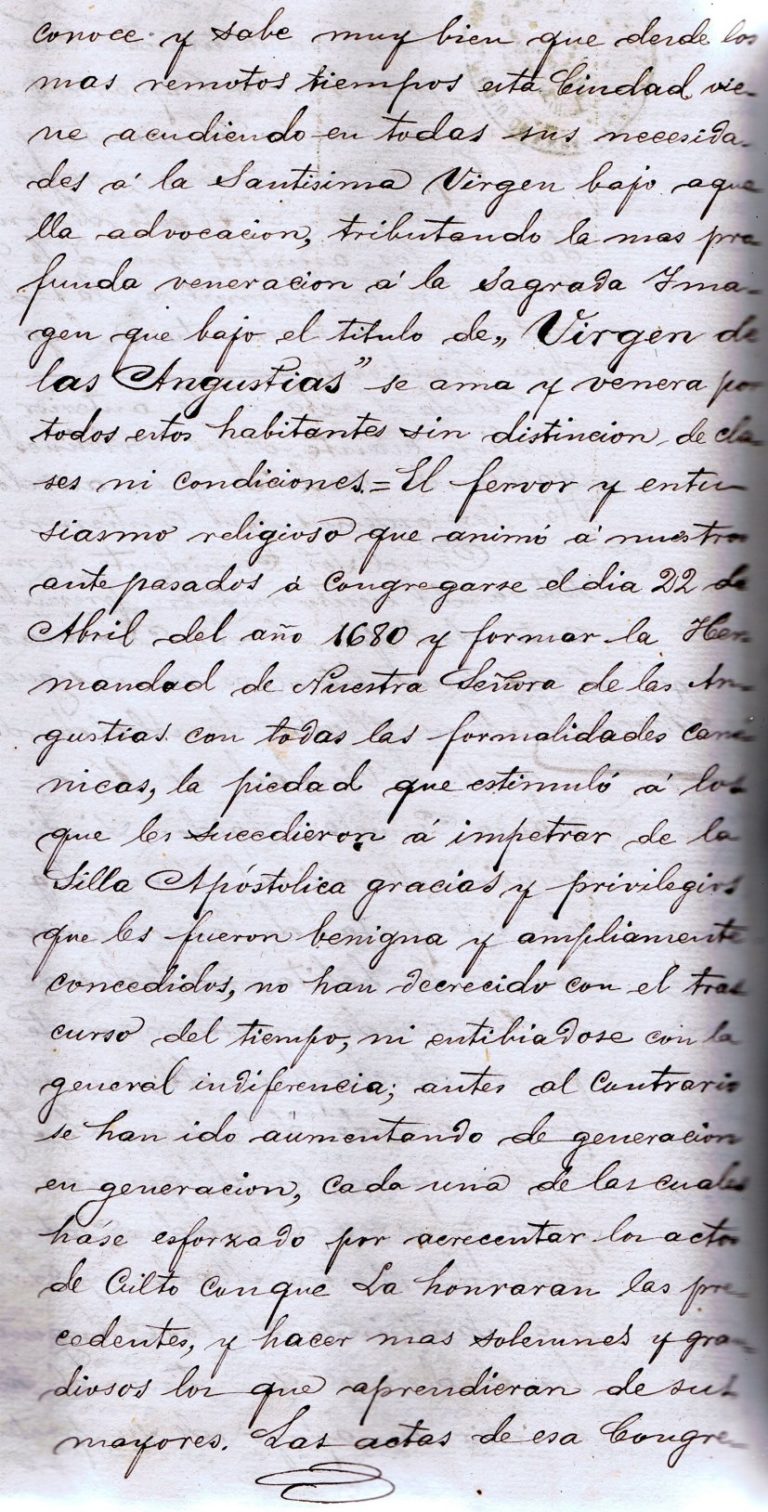 conoce y sabe muy bien que desde los
mas remotos tiempos esta Ciudad vie-
ne acudiendo en todas sus necesida-
des á la Santisima Virgen bajo aque
lla advocacion, tributando la mas pro
funda veneracion á la Sagrada Yma-
gen que bajo el titulo de „Virgen de
las Angustias” se ama y venera por
todos estos habitantes sin distincion de cla-
ses ni condiciones.=El fervor y entu-
siasmo religioso que animó á nuestros
antepasados á congregarse el dia 22 de
Abril del año 1680 y formar la Her-
mandad de Nuestra Señora de las An-
gustias con todas las formalidades canó-
nicas, la piedad que estimuló á los
que les sucedieron á impetrar de la
Silla Apóstolica gracias y privilegios
que les fueron benigna y ampliamente
concedidos, no han decrecido con el tras
curso del tiempo, ni entibiadose con la
general indiferencia; antes al contrario
se han ido aumentando de generacion
en generacion, cada una de las cuales
háse esforzado por acrecentar los actos
de Culto con que La honraran las pre-
cedentes, y hacer mas solemnes y gran-
diosos los que aprendieran de sus
mayores. Las actas de esa Congre-